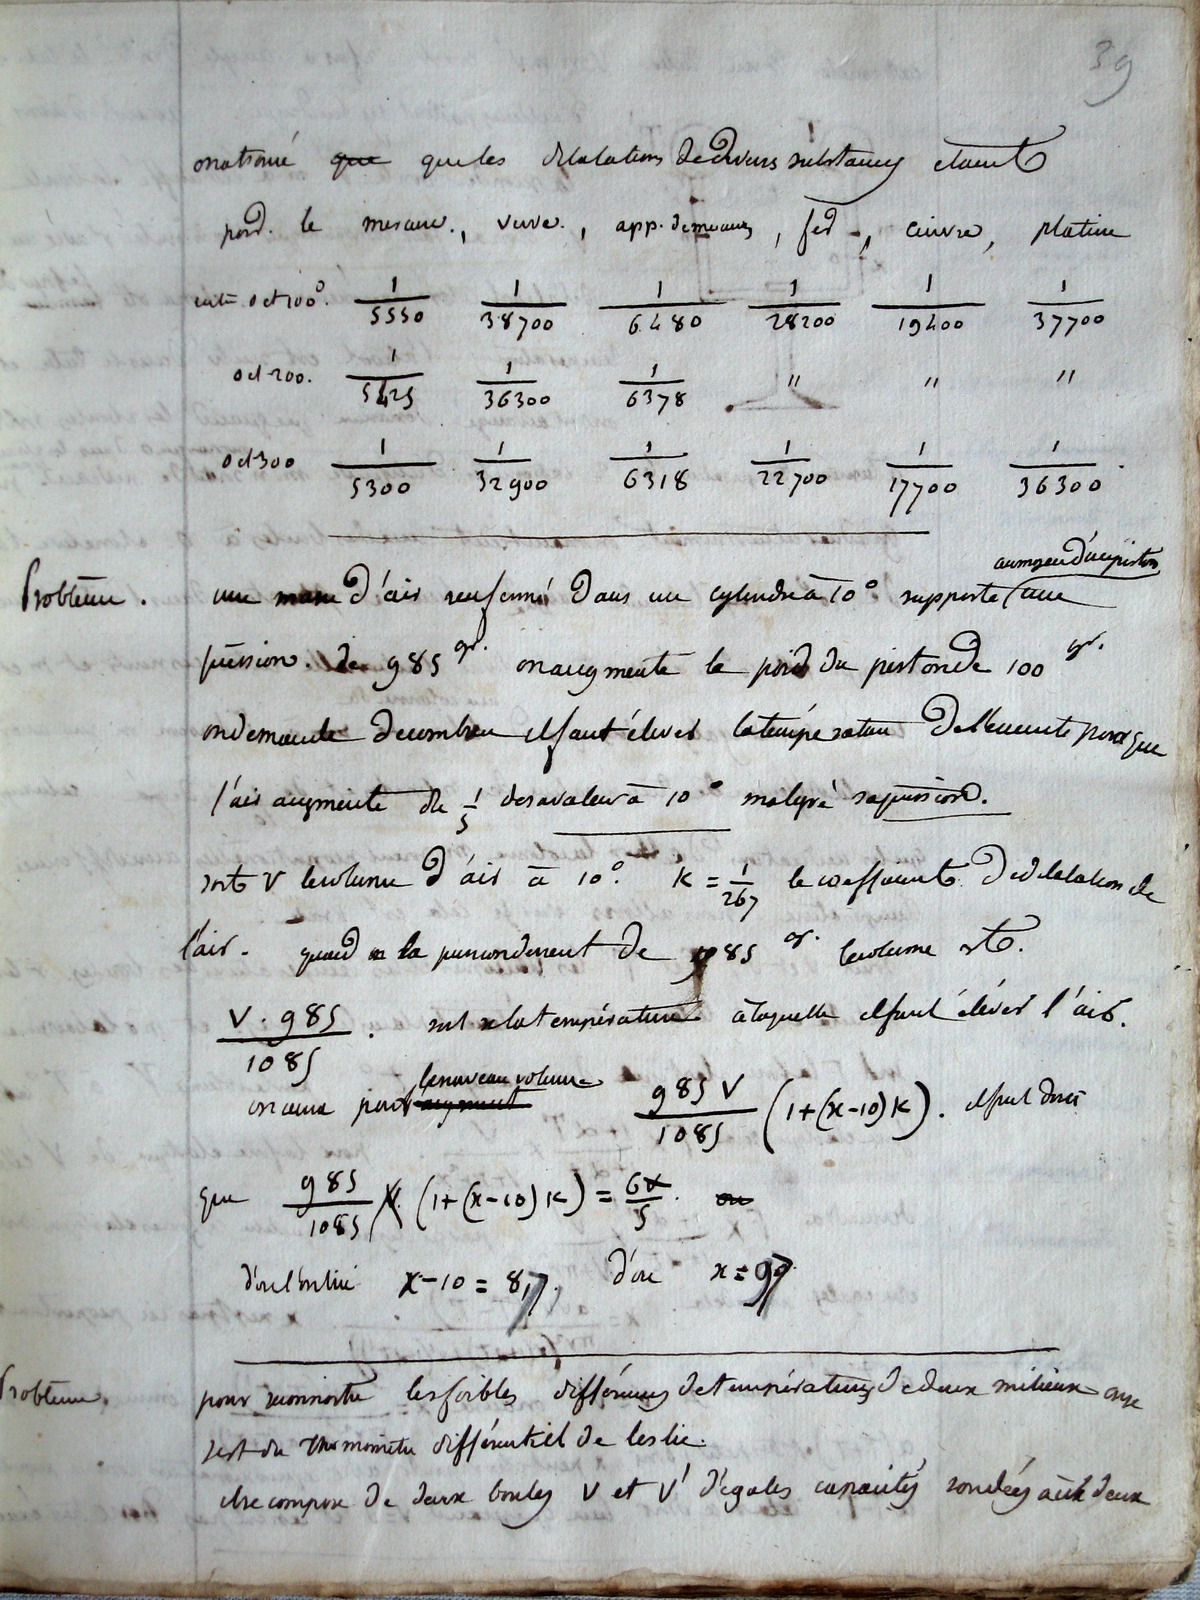 39
on a trouvé que que les dilatations de divers substances etaient
pend. le mercure, verre, app. de mercure, fer, cuivre, platine
entre 0 et 100°. 1/5550 1/38700 1/6480 1/28200 1/19400 1/37700
0 et 200. 1/5425 1/36300 1/6378 " " "
0 et 300 1/5300 1/32900 1/6318 1/22700 1/17700 1/36300
au moyen d'un piston
Problème. une masse d'air renfermé dans un cylindre à 10° supporte une
pression de 985 gr. on augmente le poid du piston de 100 gr.
on demande de combien il faut élever la température de l'enceinte pour que
l'air augmente de 1/5 de sa valeur à 10° malgré sa pression.
soit V le volume d'air à 10°. K = 1/267 le coefficient de dilatation de
l'air. quand la pression devient de 1085 gr. le volume est.
V · 985 / 1085. soit x la température à laquelle il faut élever l'air.
le nouveau volume
on aura pour augment 985 V / 1085 (1+(x-10)K). il faut donc
que 985/1085 V (1+(x-10)K) = 6V/5. ou
d'où l'on tire x-10 = 87, d'où x = 97
Problème. pour reconnoitre les foibles différences de températures de deux milieux on se
sert du thermomètre différentiel de leslie.
il se compose de deux boules V et V' d'égales capacités soudées aux deux